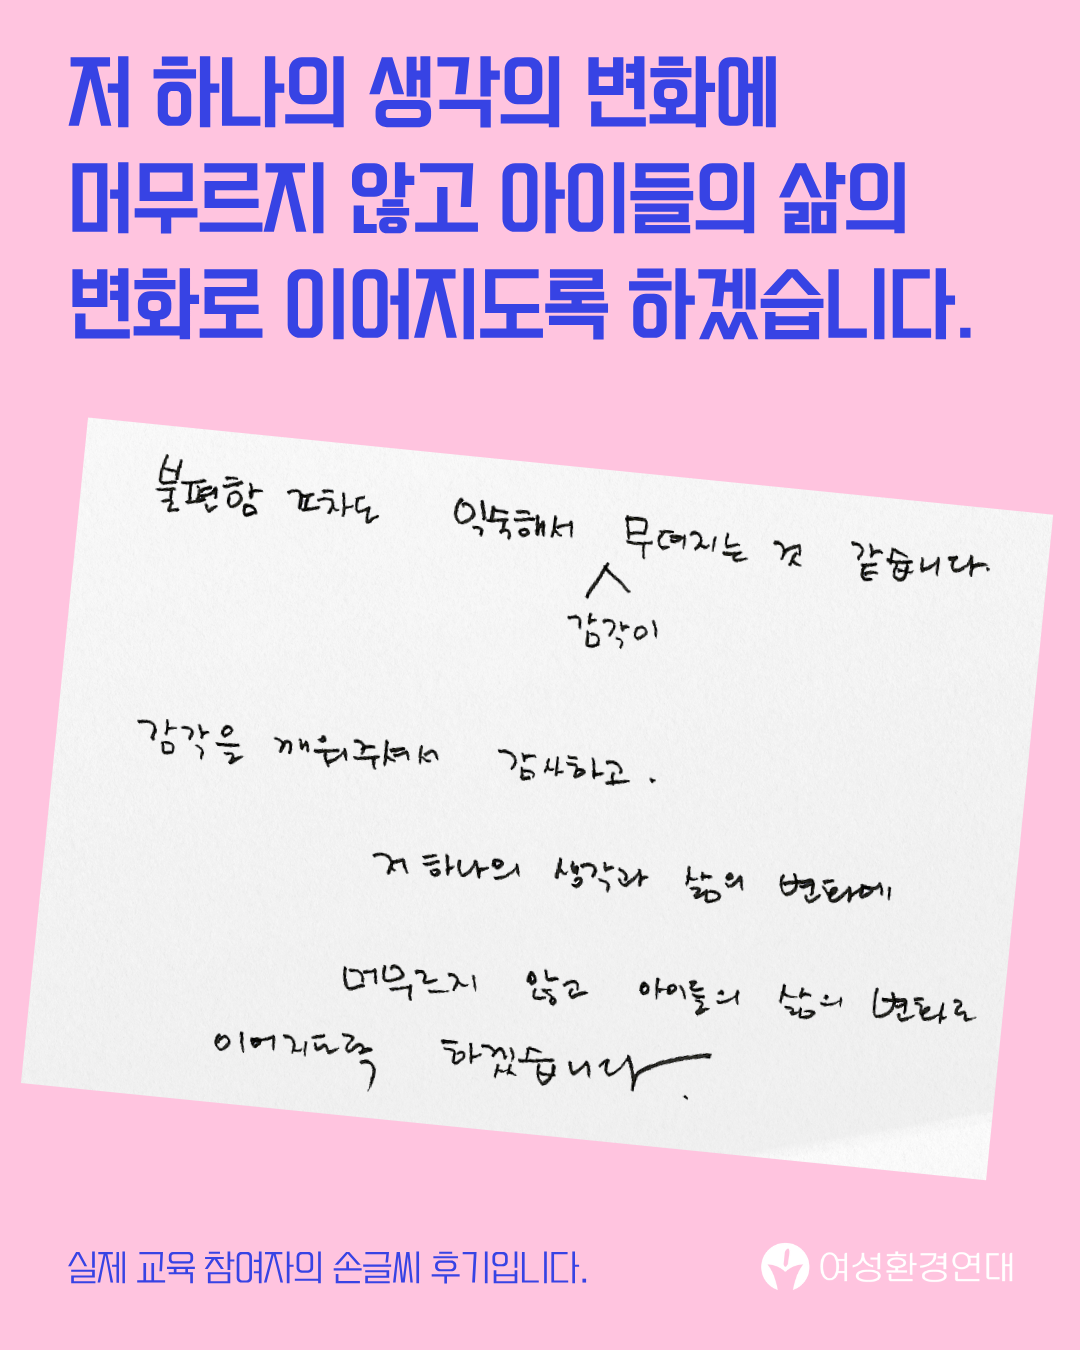 저 하나의 생각의 변화에
머무르지 않고 아이들의 삶의
변화로 이어지도록 하겠습니다.
불편함 조차도 익숙해서 무뎌지는 것 같습니다.
감각이
감각을 깨워주셔서 감사하고.
저 하나의 생각과 삶의 변화에
머무르지 않고 아이들의 삶의 변화로
이어지도록 하겠습니다.
실제 교육 참여자의 손글씨 후기입니다.
여성환경연대